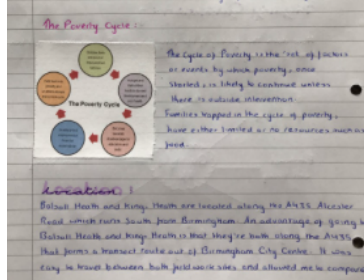 The Poverty Cycle :
The Poverty Cycle
The Cycle of Poverty is the 'set of factors
or events by which poverty, once
started, is likely to continue unless
there is outside intervention.
Families trapped in the cycle of poverty,
have either limited or no resources such as
food.
Location :
Balsall Heath and Kings Heath are located along the A435 Alcester
Road which runs south from Birmingham. An advantage of going to
Balsall Heath and Kings Heath is that they're both along the A435
that forms a transect route out of Birmingham City Centre. It was
easy to travel between both fieldwork sites and allowed me to